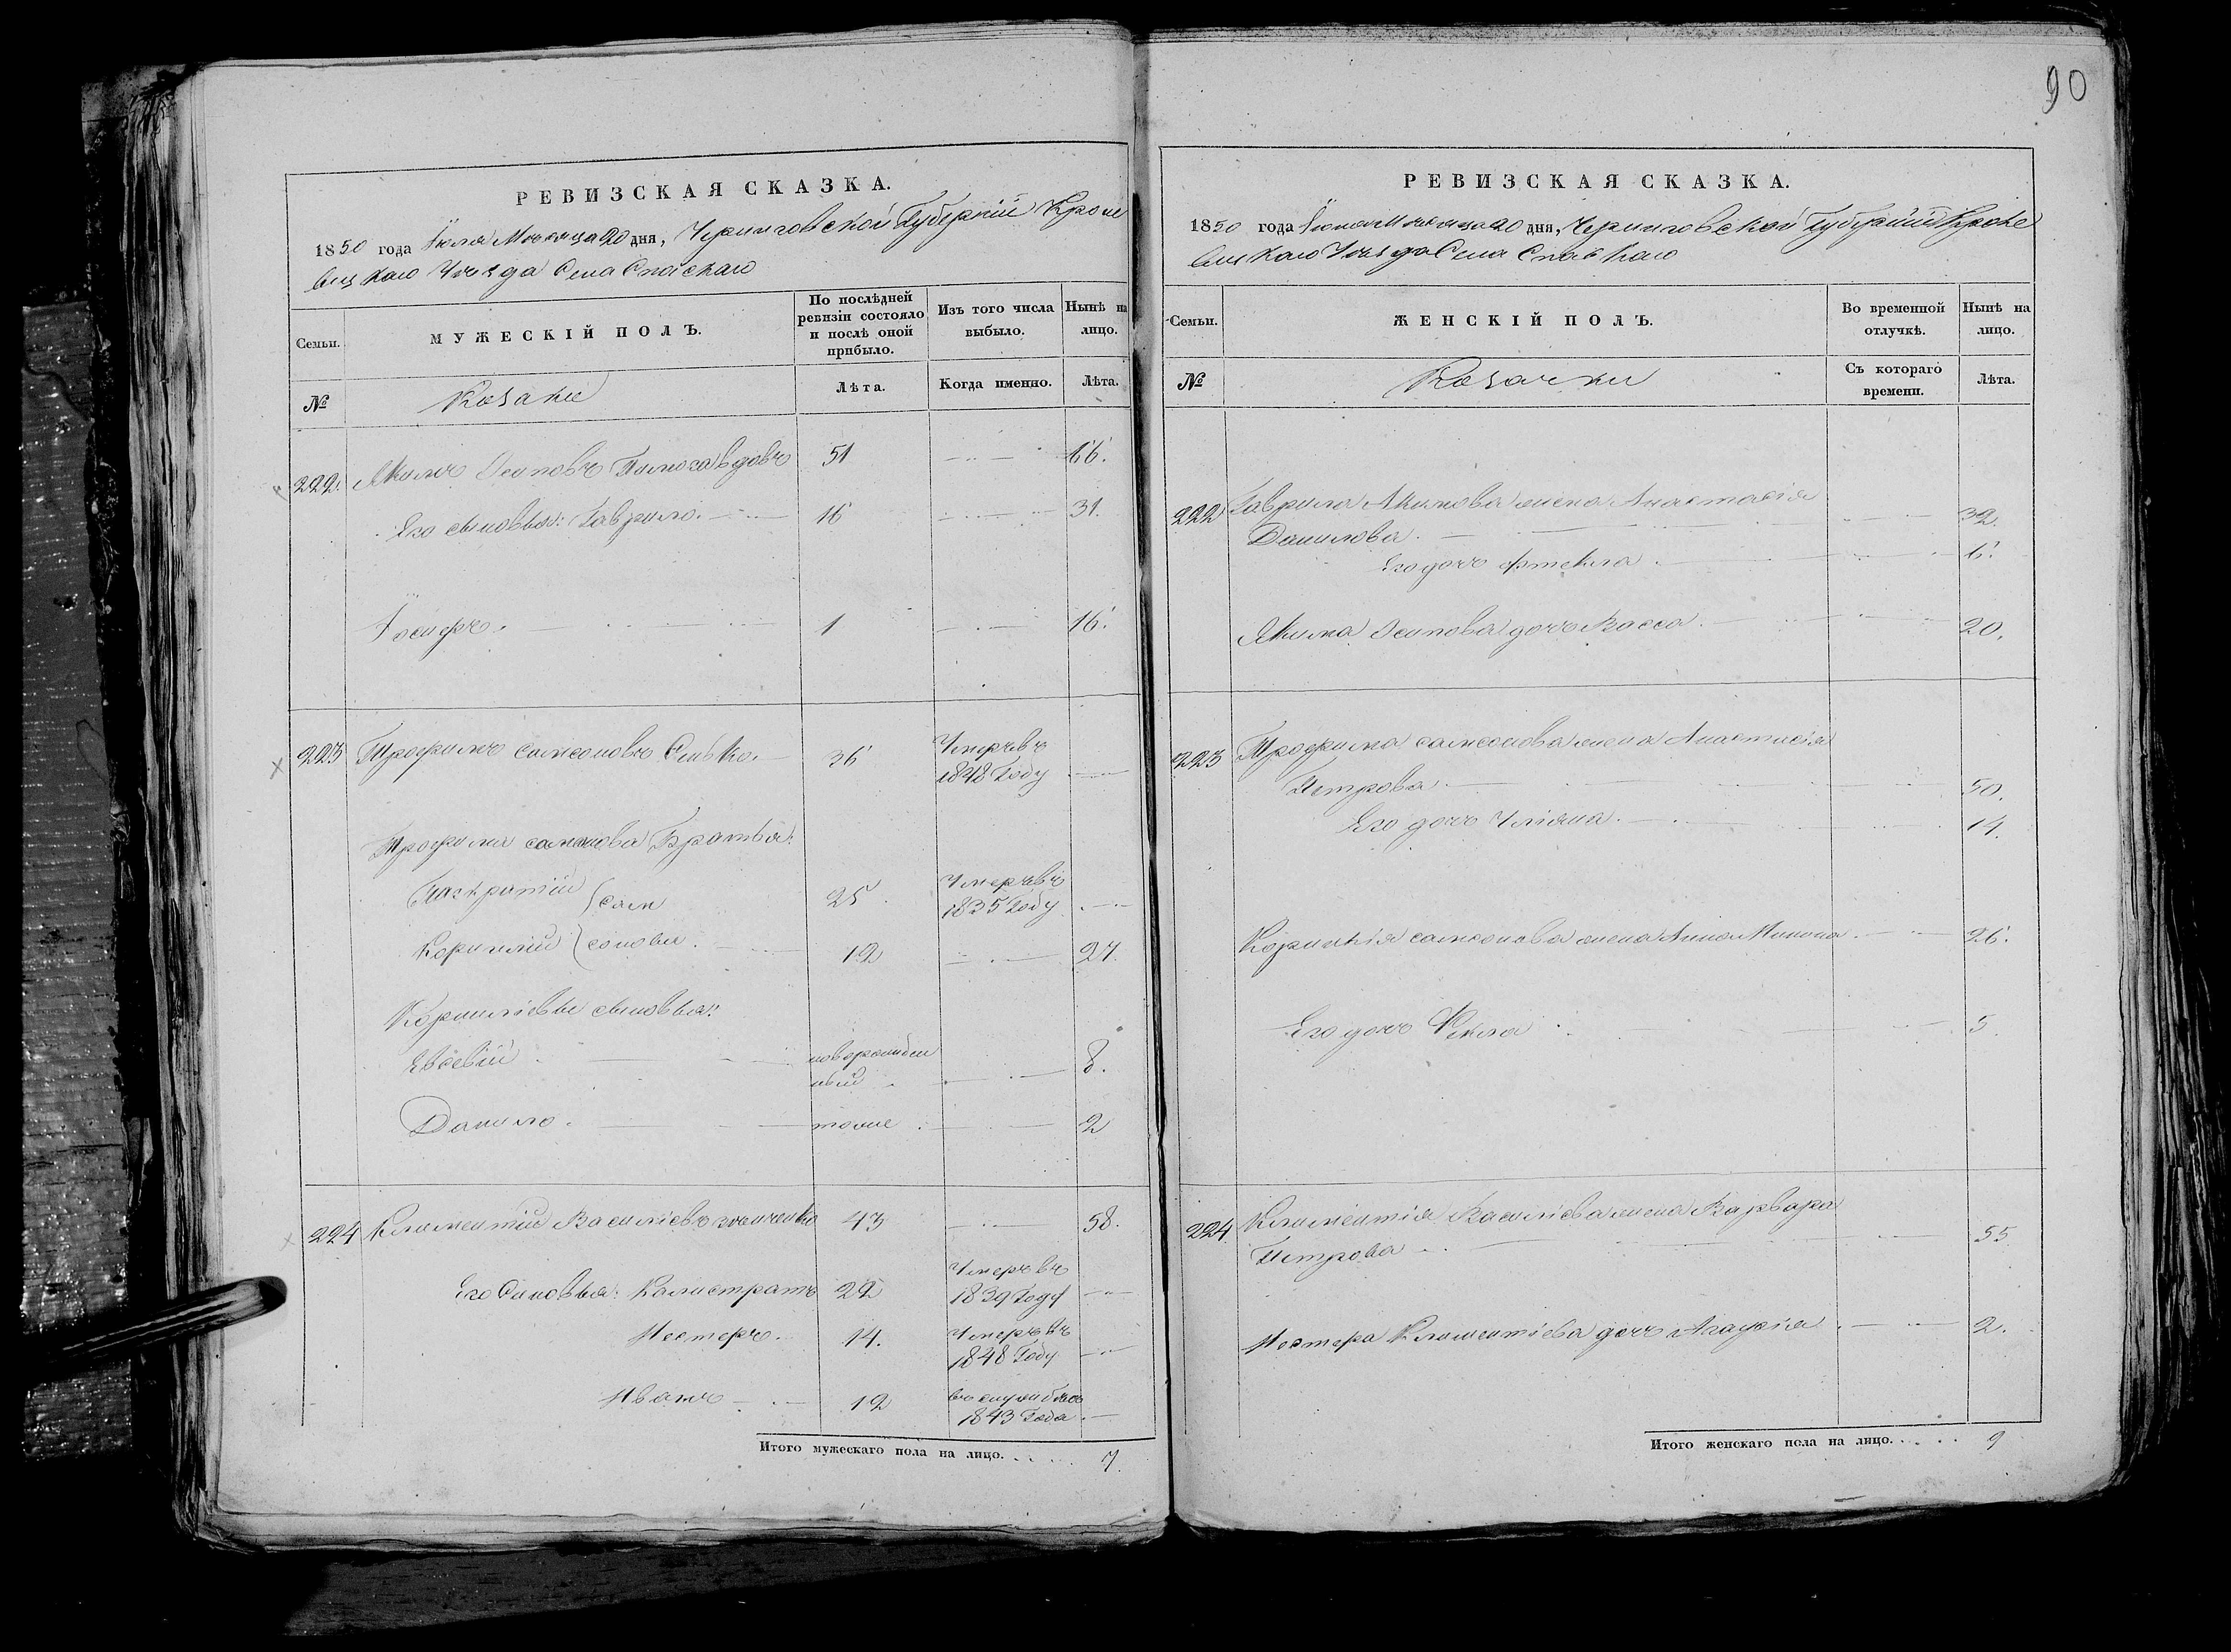 РЕВИЗСКАЯ СКАЗКА.
1850 года Июля Месяца 20 дня, Черниговской Губернiи Кроле
вецкаго Уѣзда Села Спаскаго
Семьи.
МУЖЕСКIЙ ПОЛЪ.
По послѣдней ревизiи состояло и послѣ оной прибыло.
Изъ того числа выбыло.
Нынѣ на лицо.
№
Козаки
Лѣта.
Когда именно.
Лѣта.
222. Якимъ Осиповъ 51 66.
Его сыновья: Гаврило. 16 31.
Iосифъ. 1 16.
223 Трофимъ самсоновъ 36 Умеръ въ
1848 Году
Трофима самсонова Братья:
Панкратiй сам 25 Умеръ въ
1835 Году
Корнилiй соновы. 12 27.
Корнилiевы сыновья:
Евсевiй новорожден
ный 8.
Данило. тоже 2
224 Климентiй Василiевъ 43 58.
Его Сыновья: Калистратъ 22 Умеръ въ
1839 Году
Нестеръ. 14. Умеръ въ
1848 Году
Иванъ 12 въ службѣ съ
1843 Года
Итого мужескаго пола на лицо. 7.
90
РЕВИЗСКАЯ СКАЗКА.
1850 года Iюля Месяца 20 дня, Черниговской Губернiи Кроле
вецкаго Уѣзда Села Спаскаго
Семьи.
ЖЕНСКIЙ ПОЛЪ.
Во временной отлучкѣ.
Нынѣ на лицо.
№
Козачки
Съ котораго времени.
Лѣта.
222 Гаврила Акимова жена Анастасiя
Данилова. 32.
Его дочь 6.
Якима Осипова дочь Васса. 20.
223 Трофима самсонова жена Анастасiя
Петрова. 50.
Его дочь Улiяна. 14.
Корнилiя самсонова жена Анна Минина. 26.
Его дочь Фекла 5
224 Климентiя Василiева жена Варвара
Петрова 55
Нестера Климентiева дочь Агафiя 2.
Итого женскаго пола на лицо. 9